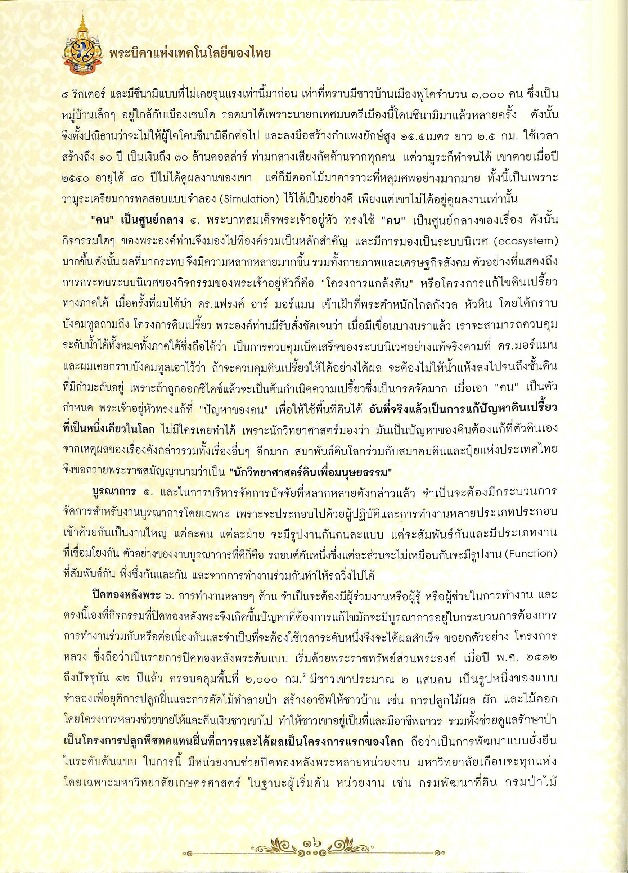 พระบิดาแห่งเทคโนโลยีของไทย
๘ ริกเตอร์ และมีซึนามิแบบที่ไม่เคยรุนแรงเท่านี้มาก่อน เท่าที่ทราบมีชาวบ้านเมืองฟูไดจำนวน ๓,๐๐๐ คน ซึ่งเป็น
หมู่บ้านเล็กๆ อยู่ใกล้กับเมืองเซนได รอดมาได้เพราะนายกเทศมนตรีเมืองนี้โดนซึนามิมาแล้วหลายครั้ง ดังนั้น
จึงตั้งปณิธานว่าจะไม่ให้ผู้ใดโดนซึนามิอีกต่อไป และลงมือสร้างกำแพงยักษ์สูง ๑๕.๕เมตร ยาว ๒.๕ กม. ใช้เวลา
สร้างถึง ๑๐ ปี เป็นเงินถึง ๓๐ ล้านดอลล่าร์ ท่ามกลางเสียงคัดค้านจากทุกคน แต่วามูระก็ทำจนได้ เขาตายเมื่อปี
๒๕๔๐ อายุได้ ๘๐ ปีไม่ได้ดูผลงานของเขา แต่ก็มีดอกไม้มาคารวะที่หลุมศพอย่างมากมาย ทั้งนี้เป็นเพราะ
วามูระเตรียมการทดสอบแบบจำลอง (Simulation) ไว้ได้เป็นอย่างดี เพียงแต่เขาไม่ได้อยู่ดูผลงานเท่านั้น
"คน" เป็นศูนย์กลาง ๔. พระบาทสมเด็จพระเจ้าอยู่หัว ทรงใช้ "คน" เป็นศูนย์กลางของเรื่อง ดังนั้น
กิจกรรมใดๆ ของพระองค์ท่านจึงมองไปที่องค์รวมเป็นหลักสำคัญ และมีการมองเป็นระบบนิเวศ (ecosystem)
มากขึ้น ดังนั้น ผลที่มากระทบ จึงมีความหลากหลายมากขึ้น รวมทั้งกายภาพและเศรษฐกิจสังคม ตัวอย่างที่แสดงถึง
การกระทบระบบนิเวศของกิจกรรมของพระเจ้าอยู่หัวก็คือ "โครงการแกล้งดิน" หรือโครงการแก้ไขดินเปรี้ยว
ทางภาคใต้ เมื่อครั้งที่ผมได้นำ ดร.แฟรงค์ อาร์ มอร์แมน เข้าเฝ้าที่พระตำหนักไกลกังวล หัวหิน โดยได้กราบ
บังคมทูลถามถึง โครงการดินเปรี้ยว พระองค์ท่านมีรับสั่งชัดเจนว่า เมื่อมีเขื่อนบางนราแล้ว เราจะสามารถควบคุม
ระดับน้ำได้ทั้งหมดทั้งภาคใต้ซึ่งถือได้ว่า เป็นการควบคุมเบ็ดเสร็จของระบบนิเวศอย่างแท้จริงตามที่ ดร.มอร์แมน
และผมเคยกราบบังคมทูลเอาไว้ว่า ถ้าจะควบคุมดินเปรี้ยวให้ได้อย่างได้ผล จะต้องไม่ให้น้ำแห้งลงไปจนถึงชั้นดิน
ที่มีกำมะถันอยู่ เพราะถ้าถูกออกซิไดซ์แล้วจะเป็นต้นกำเนิดความเปรี้ยวซึ่งเป็นกรดจัดมาก เมื่อเอา "คน" เป็นตัว
กำหนด พระเจ้าอยู่หัวทรงแก้ที่ "ปัญหาของคน" เพื่อให้ใช้พื้นที่ดินได้ อันที่จริงแล้วเป็นการแก้ปัญหาดินเปรี้ยว
ที่เป็นหนึ่งเดียวในโลก ไม่มีใครเคยทำได้ เพราะนักวิทยาศาสตร์มองว่า มันเป็นปัญหาของดินต้องแก้ที่ตัวดินเอง
จากเหตุผลของเรื่องดังกล่าวรวมทั้งเรื่องอื่นๆ อีกมาก สมาพันธ์ดินโลกร่วมกับสมาคมดินและปุ๋ยแห่งประเทศไทย
จึงขอถวายพระราชสมัญญานามว่าเป็น "นักวิทยาศาสตร์ดินเพื่อมนุษยธรรม"
บูรณาการ ๕. และในการบริหารจัดการปัจจัยที่หลากหลายดังกล่าวแล้ว จำเป็นจะต้องมีกระบวนการ
จัดการสำหรับงานบูรณาการโดยเฉพาะ เพราะจะประกอบไปด้วยผู้ปฏิบัติและการทำงานหลายประเภทประกอบ
เข้าด้วยกันเป็นงานใหญ่ แต่ละคน แต่ละฝ่าย จะมีรูปงานกันคนละแบบ แต่จะสัมพันธ์กันและมีประเภทงาน
ที่เชื่อมโยงกัน ตัวอย่างของงานบูรณาการที่ดีก็คือ รถยนต์คันหนึ่งซึ่งแต่ละส่วนจะไม่เหมือนกันจะมีรูปงาน (Function)
ที่สัมพันธ์กัน พึ่งซึ่งกันและกัน และจากการทำงานร่วมกันทำให้รถวิ่งไปได้
ปิดทองหลังพระ ๖. การทำงานหลายๆ ด้าน จำเป็นจะต้องมีผู้ร่วมงานหรือผู้รู้ หรือผู้ช่วยในการทำงาน และ
ตรงนี้เองที่กิจกรรมที่ปิดทองหลังพระจึงเกิดขึ้นปัญหาที่ต้องการแก้ไขมักจะมีบูรณาการอยู่ในกระบวนการต้องการ
การทำงานร่วมกันหรือต่อเนื่องกันและจำเป็นที่จะต้องใช้เวลาระดับหนึ่งจึงจะได้ผลสำเร็จ ขอยกตัวอย่าง โครงการ
หลวง ซึ่งถือว่าเป็นรายการปิดทองหลังพระต้นแบบ เริ่มด้วยพระราชทรัพย์ส่วนพระองค์ เมื่อปี พ.ศ. ๒๕๑๒
ถึงปัจจุบัน ๔๒ ปีแล้ว ครอบคลุมพื้นที่ ๒,๐๐๐ กม.² มีชาวเขาประมาณ ๒ แสนคน เป็นรูปหนึ่งของแบบ
จำลองเพื่อยุติการปลูกฝิ่นและการตัดไม้ทำลายป่า สร้างอาชีพให้ชาวบ้าน เช่น การปลูกไม้ผล ผัก และไม้ดอก
โดยโครงการหลวงช่วยขายให้และคืนเงินชาวเขาไป ทำให้ชาวเขาอยู่เป็นที่และมีอาชีพถาวร รวมทั้งช่วยดูแลรักษาป่า
เป็นโครงการปลูกพืชทดแทนฝิ่นที่ถาวรและได้ผลเป็นโครงการแรกของโลก ถือว่าเป็นการพัฒนาแบบยั่งยืน
ในระดับต้นแบบ ในการนี้ มีหน่วยงานช่วยปิดทองหลังพระหลายหน่วยงาน มหาวิทยาลัยเกือบจะทุกแห่ง
โดยเฉพาะมหาวิทยาลัยเกษตรศาสตร์ ในฐานะผู้เริ่มต้น หน่วยงาน เช่น กรมพัฒนาที่ดิน กรมป่าไม้
๑๖